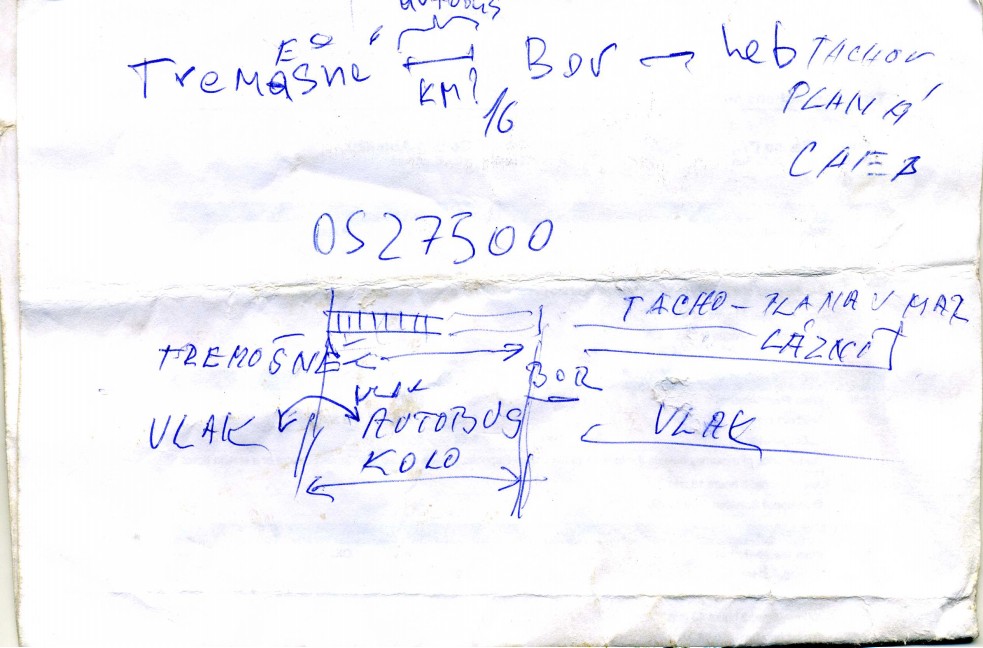 autobus
Tremešné Bor → heb TACHOV
KM?
16
PLANÁ
CHEB
0527500
TACHO - PLANA U MAR
LÁZNÍ
TREMOŠNÉ
BOR
VLAK
VLAK AUTOBUS VLAK
KOLO